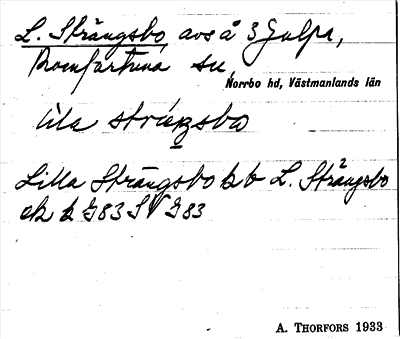 L. Strängsbo, avs å 3 Gulpa,
Romfartuna sn,
Norrbo hd, Västmanlands län
lila strängsbo
Lilla Strängsbo bb L. Strängsbo
ek k G83 SV G83
A. THORFORS 1933